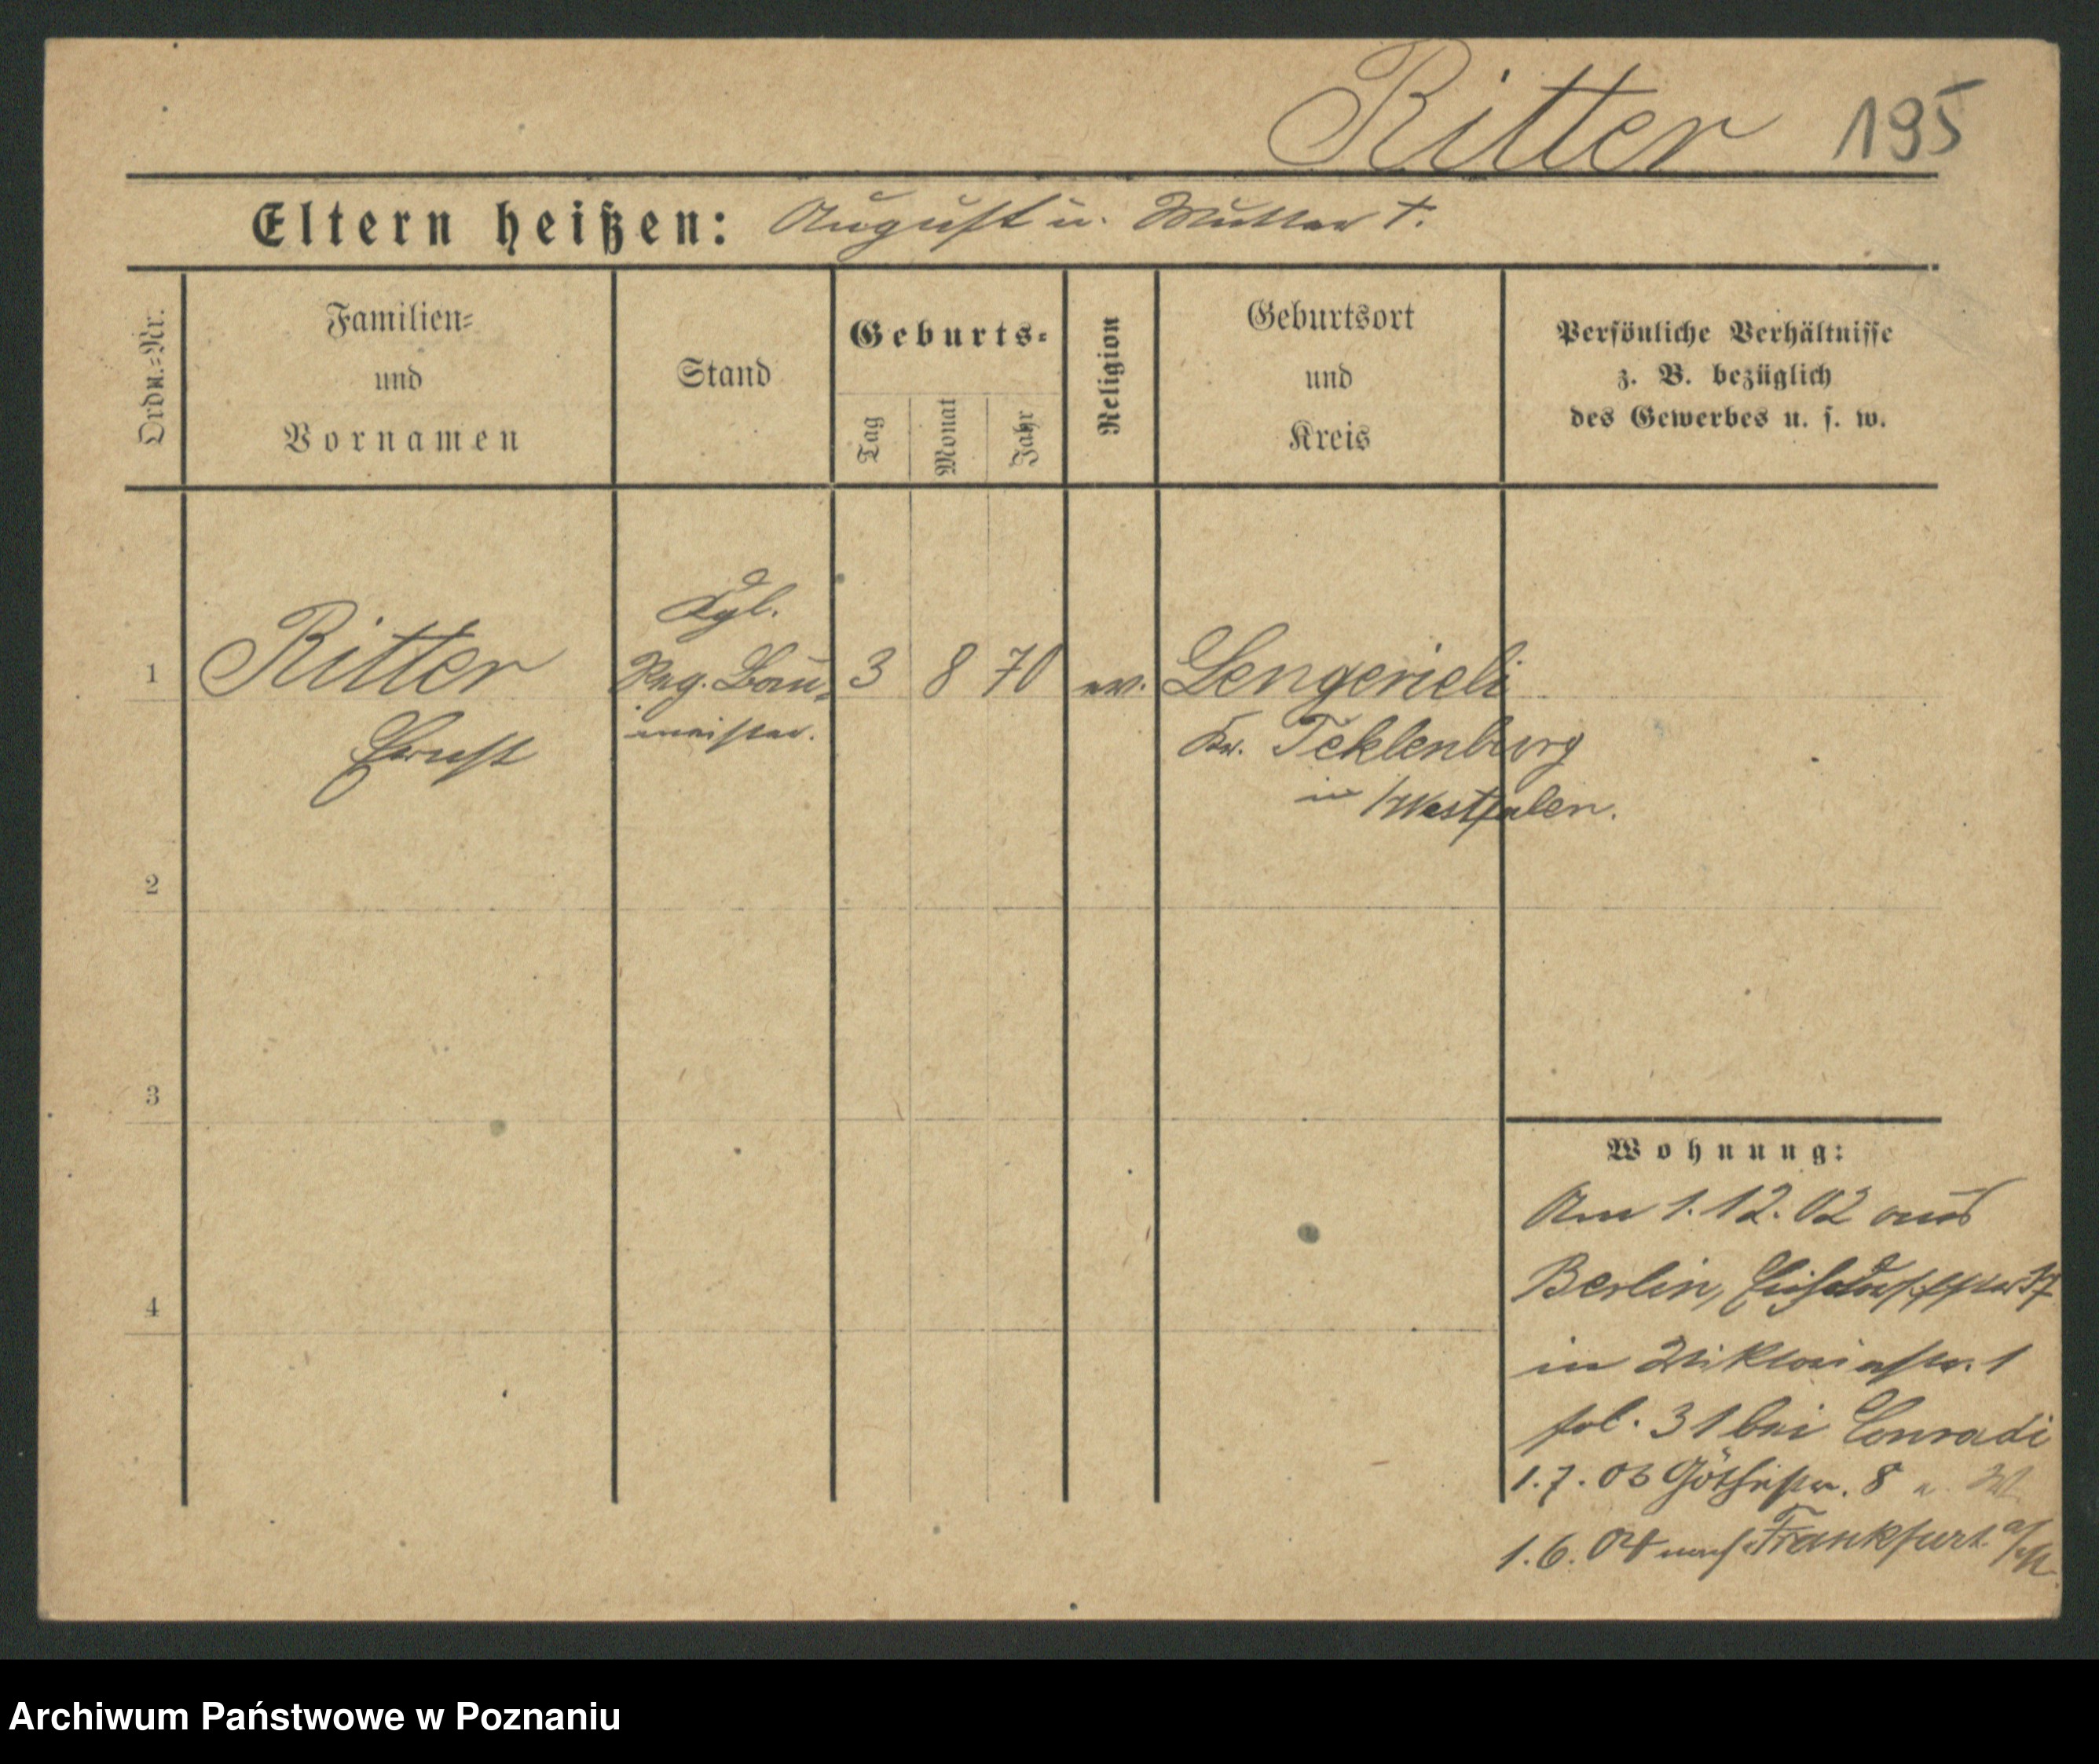 Ritter 195
Eltern heißen: August u. Mutter †.
Ordn.=Nr.
Familien=
und
Vornamen
Stand
Geburts=
Tag
Monat
Jahr
Religion
Geburtsort
und
Kreis
Persönliche Verhältnisse
z. B. bezüglich
des Gewerbes u. s. w.
1
Ritter
Ernst
Kgl.
Reg. Bau=
meister.
3 8 70
ev.
Lengerich
Kr. Teklenburg
in Westfalen.
2
3
4
Wohnung:
Am 1.12.02 aus
Berlin, 37
in Viktoriastr. 1
fol. 31 bei Conradi
1.7.03 Göthestr. 8
1.6.04 nach Frankfurt a/M.
Archiwum Państwowe w Poznaniu